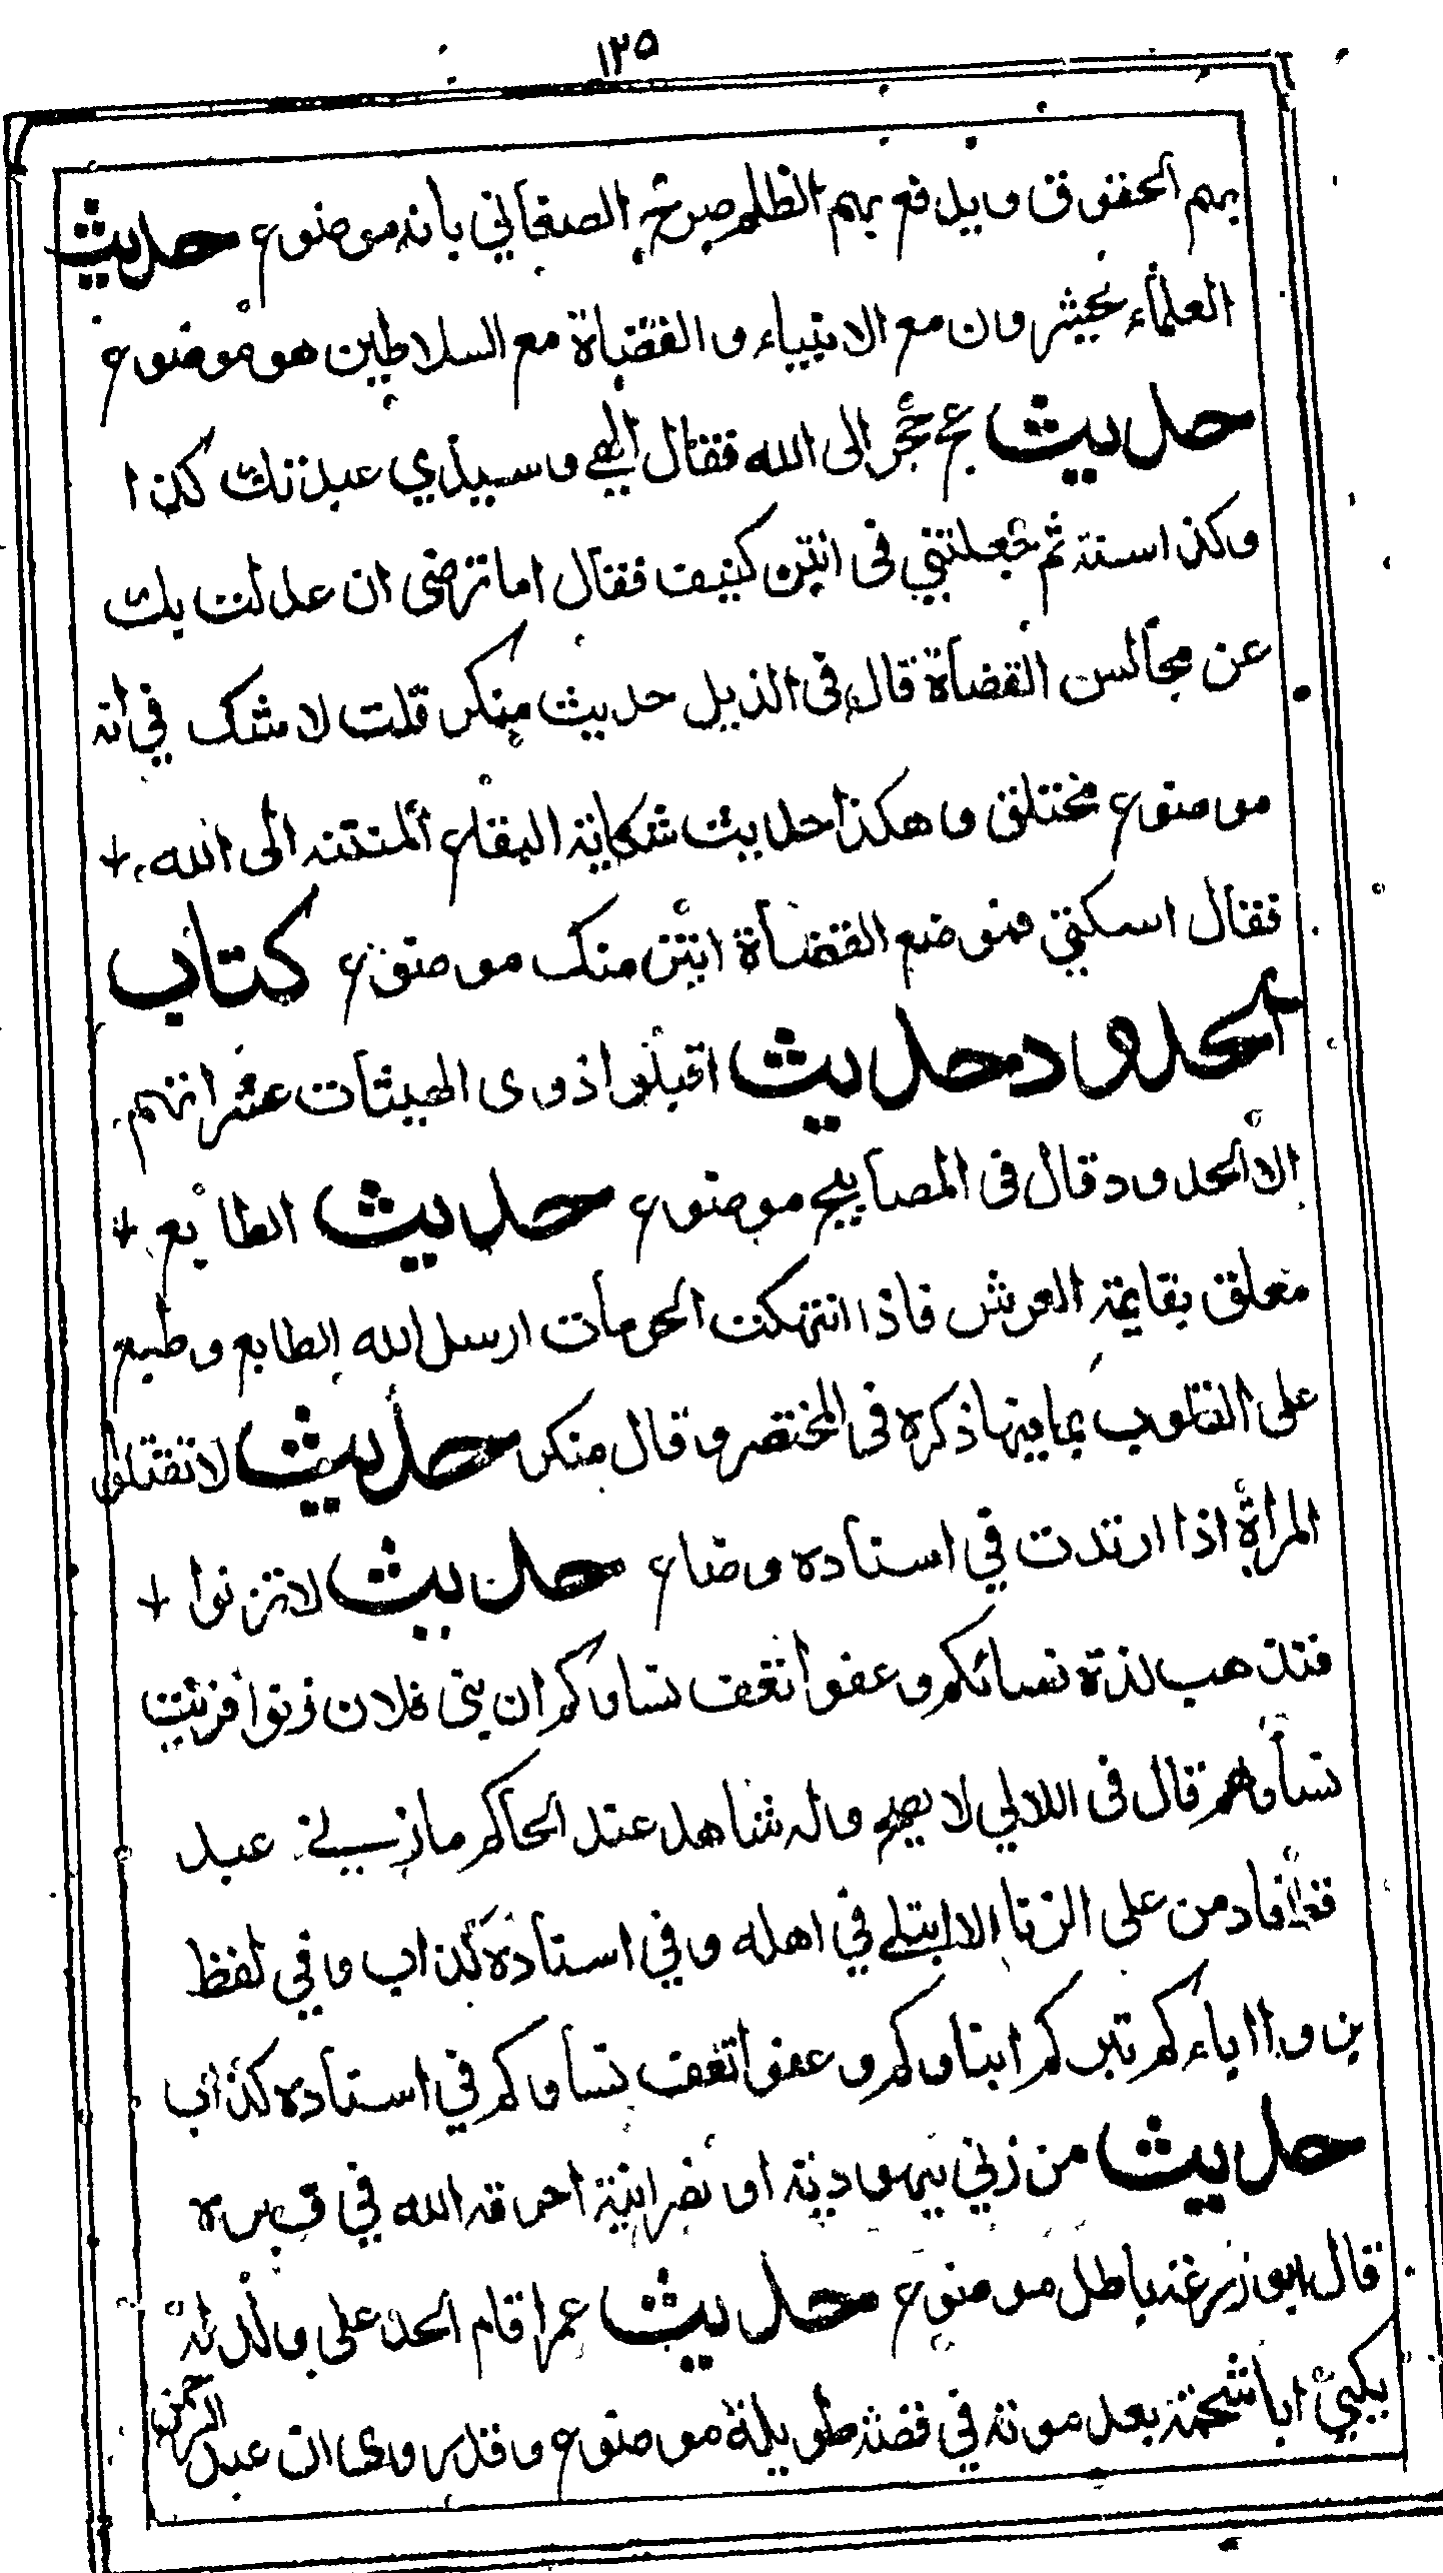 ١٢٥
بهم الحقوق ويدفع بهم الظلم صرح به الصغاني بانه موضوع حديث
العلماء يحشرون مع الانبياء والقضاة مع السلاطين هو موضوع
حديث عج حجر الى الله فقال الهي وسيدي عبدتك كذا
وكذا سنة ثم جعلتني في اس كنيف فقال اما ترضى ان عدلت بك
عن مجالس القضاة قال في الذيل حديث منكر قلت لا شك في انه
موضوع مختلق وهكذا حديث شكاية البقاع المنتنه الى الله
فقال اسكني فموضع القضاة انتن منك موضوع كتاب
الحدود حديث اقبلوا ذوى الهيئات عثراتهم
الا الحدود قال في المصابيح موضوع حديث الطابع
معلق بقايمة العرش فاذا انتهكت الحرمات ارسل الله الطابع وطبع
على القلوب بما فيها ذكره في المختصر وقال منكر حديث لا تقتلوا
المراة اذا ارتدت في اسناده وضاع حديث لا تزنوا
فتذهب لذة نسائكم وعفوا تعف نساوكم ان بنى فلان زنوا فزنت
نساوهم قال في اللالي لا يصح وله شاهد عند الحاكم ما زنى عبد
فادمن على الزنا الا ابتلي في اهله وفي اسناده كذاب وفي لفظ
بروا اباءكم تبركم ابناوكم وعفوا تعف نساوكم في اسناده كذاب
حديث من زنى بيهودية او نصرانية احرقه الله في قبره
قال ابو زرعة باطل موضوع حديث عمر اقام الحد على ولد له
يكنى ابا شحمة بعد موته في قصة طويلة موضوع وقد روى ان عبد الرحمن